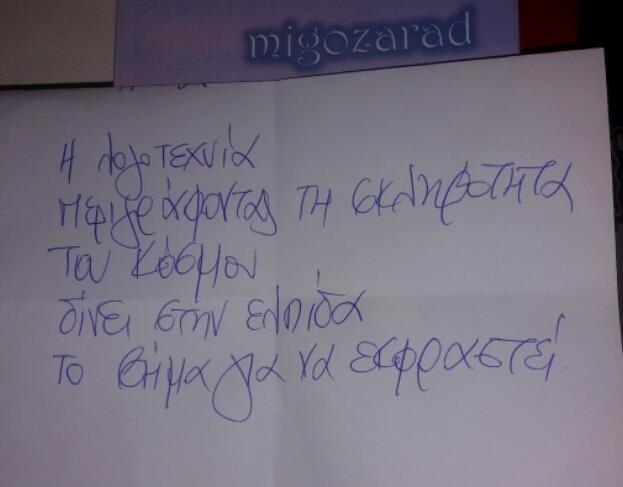 migozarad
Η λογοτεχνία
περιγράφοντας τη σκληρότητα
του κόσμου
δίνει στην ελπίδα
το βήμα για να εκφραστεί.